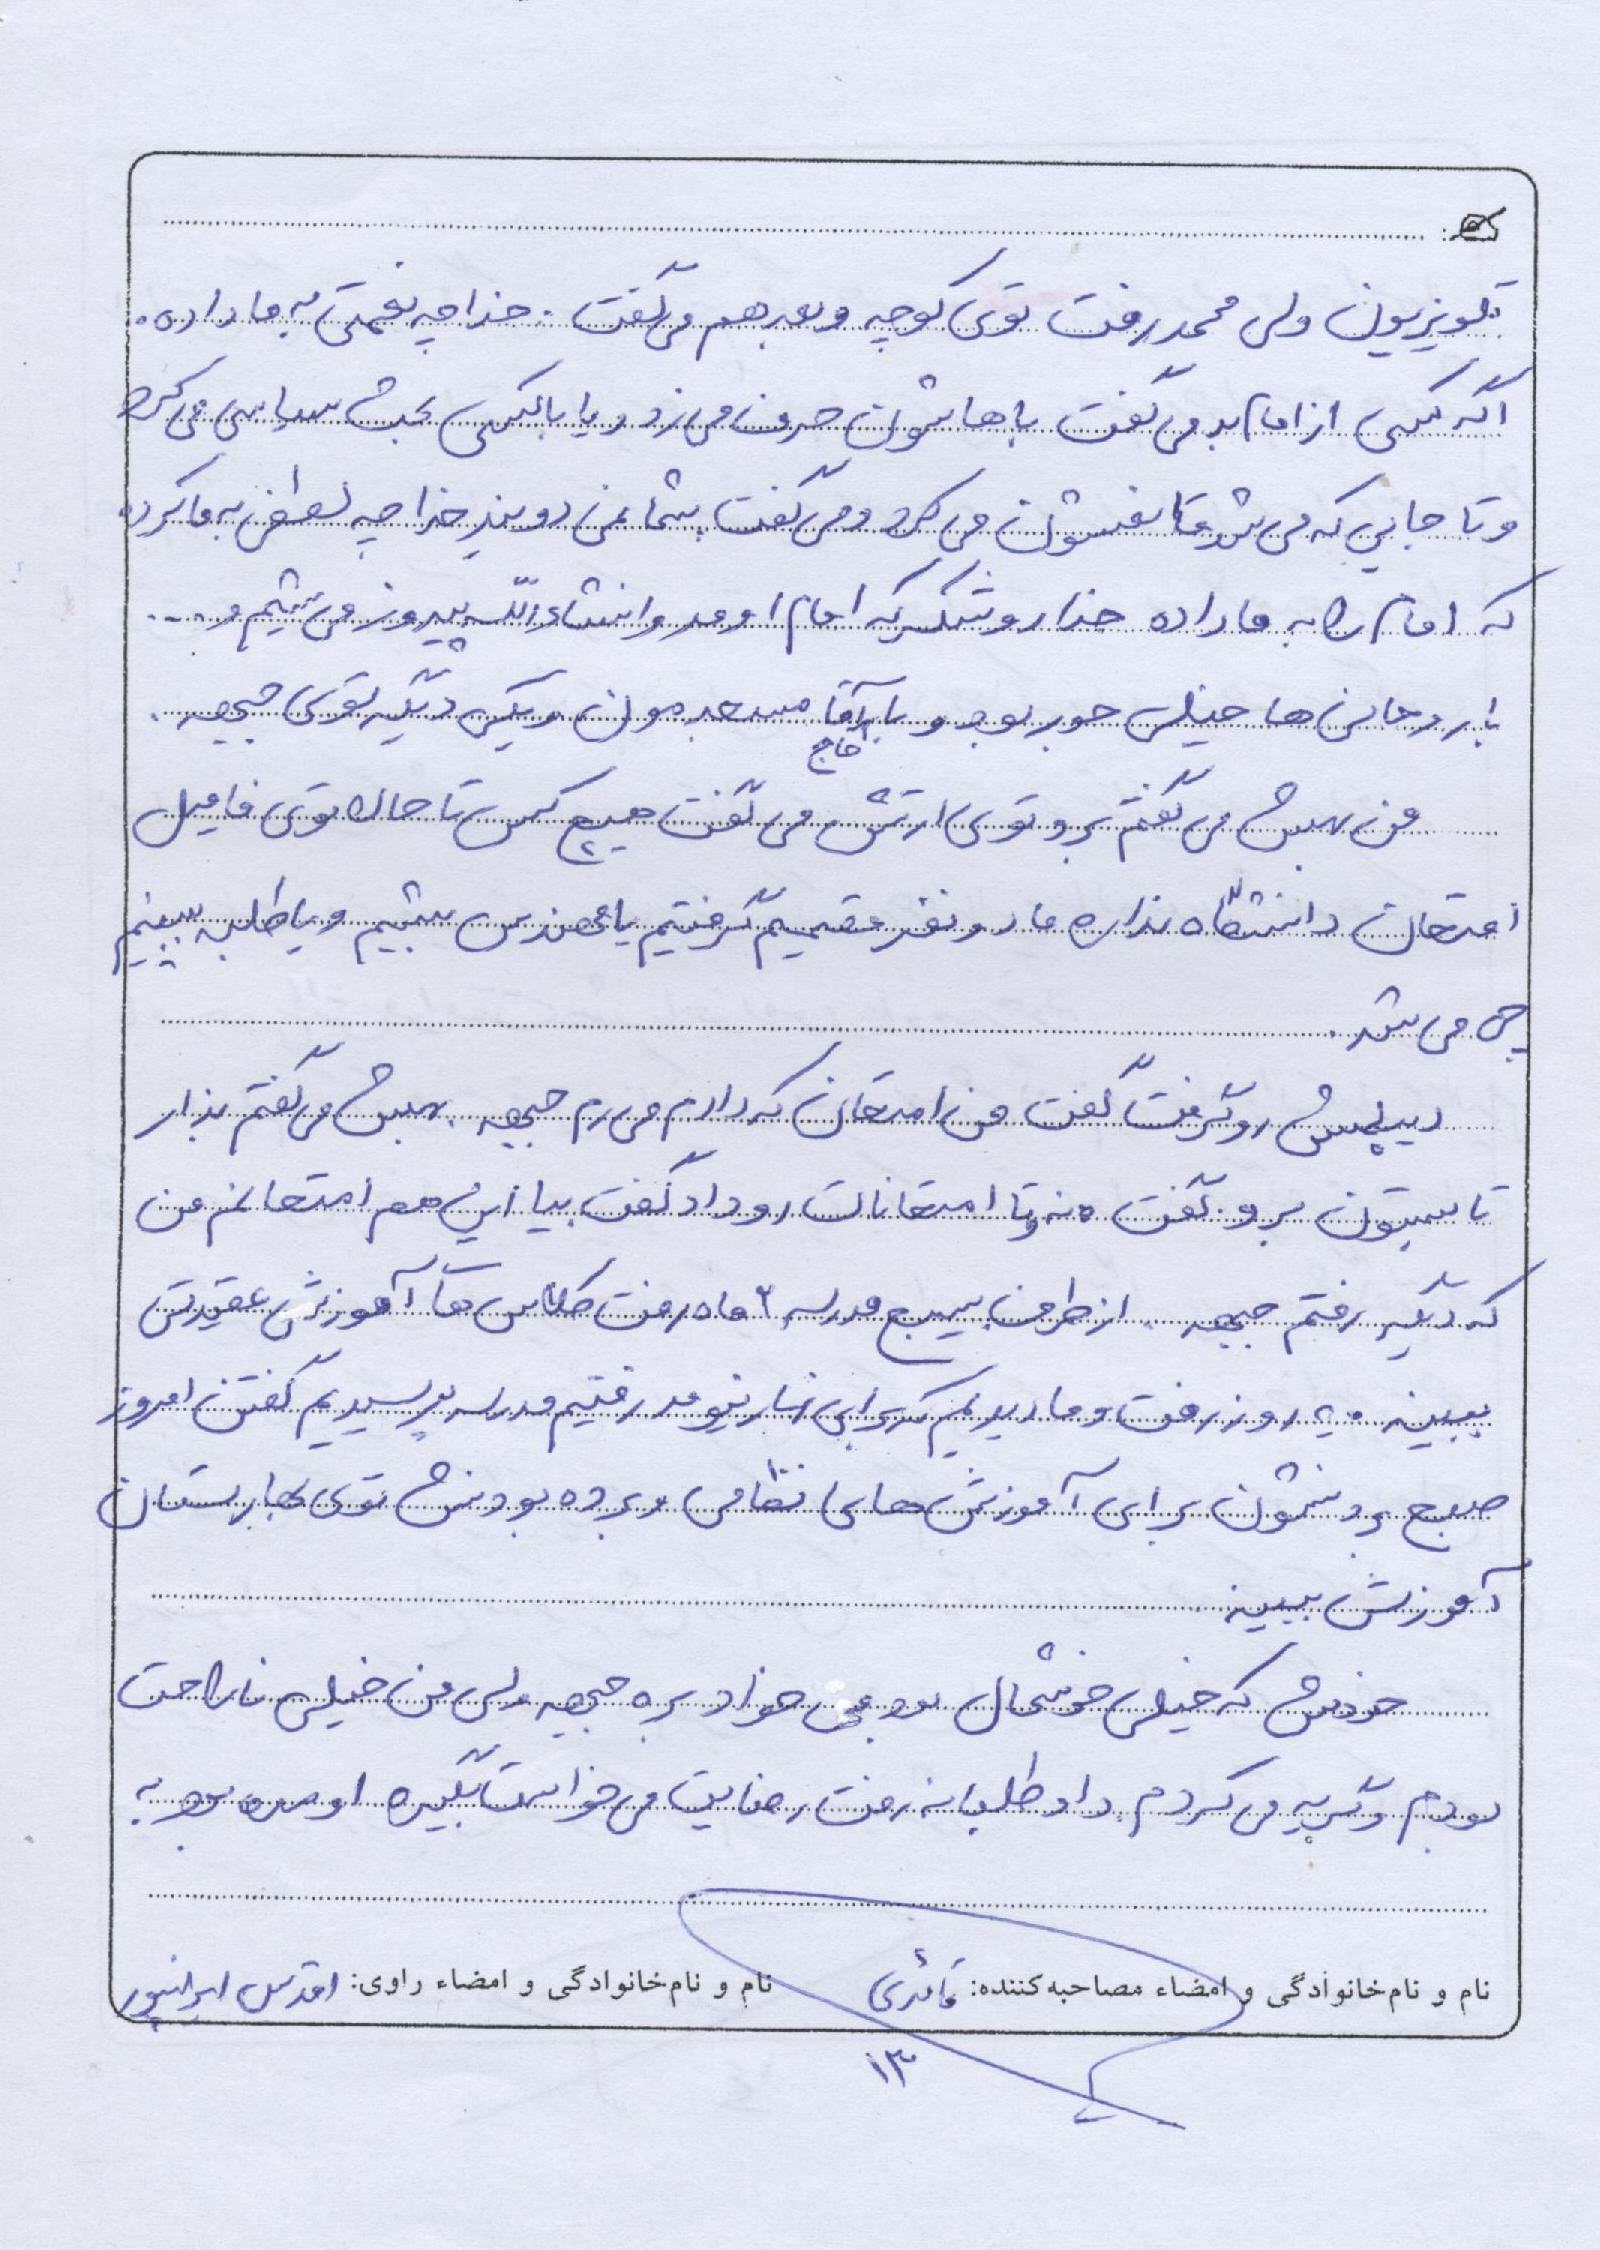 تلویزیون ولی محمد رفت توی کوچه و بعد هم می گفت . خدا چه نعمتی به ما داده .
اگه کسی از امام بد می گفت باهاشون حرف می زد و یا با کسی بحث سیاسی می کرد
و تا جایی که می شد قانعشون می کرد و می گفت شما نمی دونید خدا چه لطفی به ما کرده
که امام را به ما داده خدا رو شکر که امام اومد و انشاءالله پیروز می شیم و ....
با روحانی ها خیلی جور بود و با حاج آقا مسجدمون و یکی دیگه توی جبهه .
من بهش می گفتم برو توی ارتش می گفت هیچ کس تا حالا توی فامیل
امتحان دانشگاه نداره ما دو نفر تصمیم گرفتیم یا مهندس بشیم و یا طلبه ببینیم
چی می شد .
دیپلمش رو گرفت گفت من امتحان که دادم می رم جبهه . بهش می گفتم بذار
تابستون برو . گفت نه و تا امتحانات رو داد گفت بیا این هم امتحانم من
که دیگه رفتم جبهه . از طرف بسیج مدرسه ۲ ماه رفت کلاس ها آموزش عقیدتی
ببینه . یه روز رفت و ما دیدیم که برای نهار نیومد رفتیم مدرسه پرسیدیم گفتن امروز
صبح بردنشون برای آموزش های نظامی و برده بودنش توی بهارستان
آموزش ببینه .
خودش که خیلی خوشحال بود می خواد بره جبهه ولی من خیلی ناراحت
بودم و گریه می کردم . داوطلبانه رفت رضایت می خواست بگیره اومده بود به
نام و نام‌خانوادگی و امضاء مصاحبه‌کننده: قائدی نام و نام‌خانوادگی و امضاء راوی: اقدس ایرانپور
۱۳